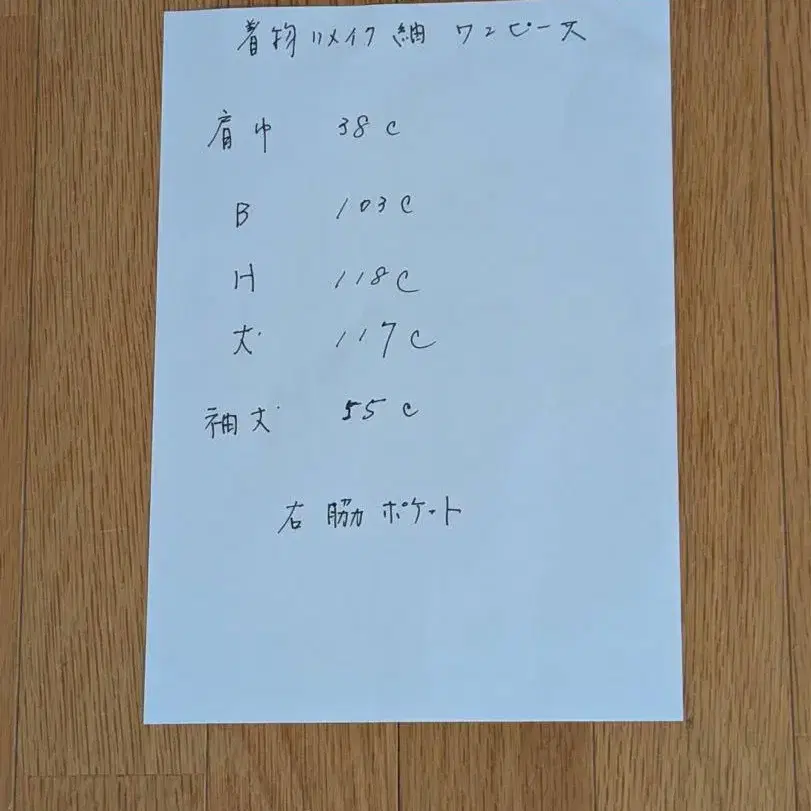 着物リメイク紬ワンピース
肩巾 38c
B 103c
H 118c
丈 117c
袖丈 55c
右脇ポケット